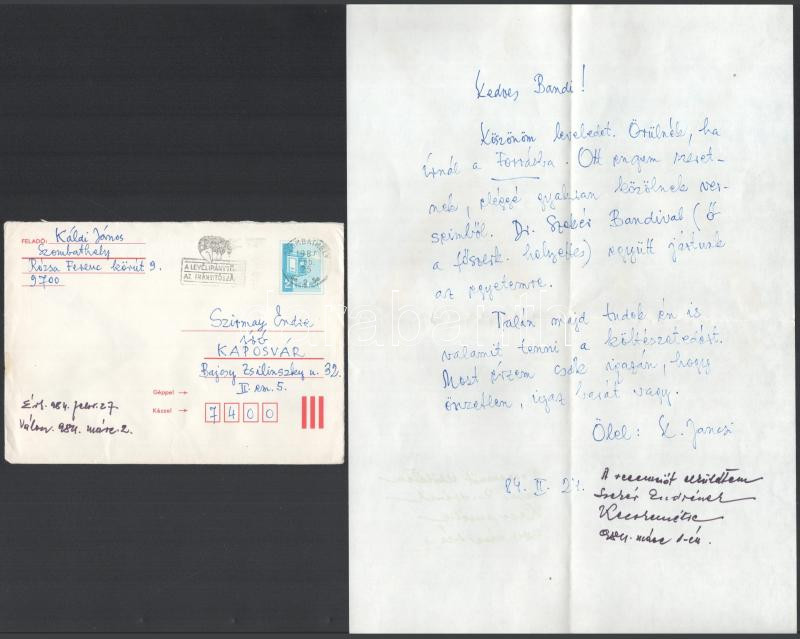 FELADÓ: Káldi János
Szombathely
Rózsa Ferenc körút 9.
9700
A LEVÉLIRÁNYÍTÁS
AZ IRÁNYÍTÓSZÁM
Szirmay Endre
KAPOSVÁR
Bajcsy Zsilinszky u. 32.
II. em. 5.
Géppel →
Kézzel →
7400
Érk. 984. febr. 27
Válasz. 984. márc. 2.
Kedves Bandi!
Köszönöm leveledet. Örülnék, ha
írnál a Forrásba. Ott engem szeret-
nek, eléggé gyakran közölnek ver-
seimből. Dr. Szekér Bandival (ő
a főszerk. helyettes) együtt jártunk
az egyetemre.
Talán majd tudok én is
valamit tenni a költészetedért.
Most érzem csak igazán, hogy
önzetlen, igaz barát vagy.
Ölel: K. Jancsi
84. II. 21.
A recenziót elküldtem
Szekér Endrének
Kecskemétre
984. márc 1-én.